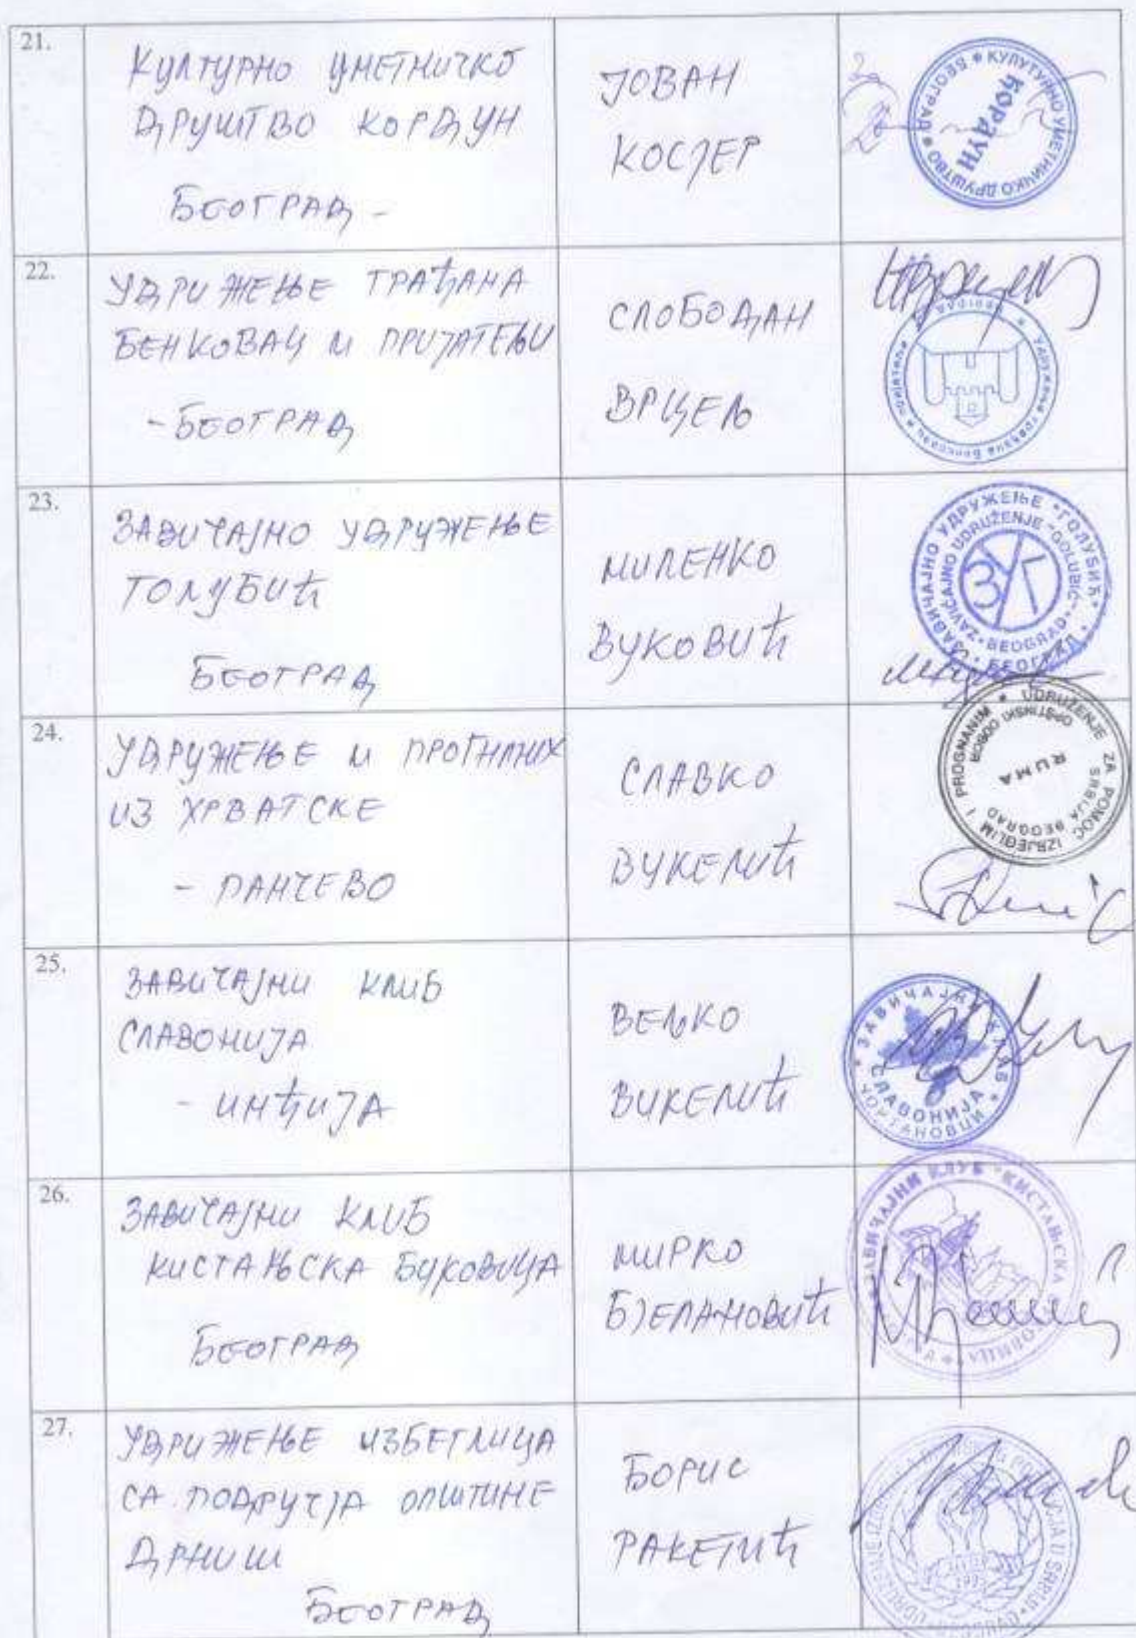 21.
Културно уметничко
друштво Кордун
Београд -
ЈОВАН
КОСЈЕР
КУЛУТУРНО УМЕТНИЧКО ДРУШТВО * БЕОГРАД *
КОРДУН
22.
Удрижење грађана
Бенковац и пријатељи
- Београд
СЛОБОДАН
ВРЦЕЉ
Удружење грађана Бенковац и пријатељи
23.
Завичајно удружење
Голубић
Београд
МИЛЕНКО
ВУКОВИЋ
ЗАВИЧАЈНО УДРУЖЕЊЕ "ГОЛУБИЋ" * БЕОГРАД *
ZAVIČAJNO UDRUŽENJE "GOLUBIĆ" * BEOGRAD *
ЗУГ
24.
Удружење и прогнаних
из Хрватске
- Панчево
СЛАВКО
ВУКЕЛИЋ
UDRUŽENJE ZA POMOĆ IZBJEGLIM I PROGNANIM *
OPŠTINSKI ODBOR
RUMA
SRBIJA BEOGRAD
25.
Завичајни клиб
Славонија
- Инђија
ВЕЉКО
ВИКЕЛИЋ
* ЗАВИЧАЈНИ КЛУБ *
СЛАВОНИЈА
ЧОРТАНОВЦИ
26.
Завичајни клиб
Кистањска Буковица
Београд
МИРКО
БЈЕЛАНОВИЋ
ЗАВИЧАЈНИ КЛУБ "КИСТАЊСКА
27.
Удрижење избеглица
са подручја општине
Дрниш
Београд
БОРИС
РАКЕТИЋ